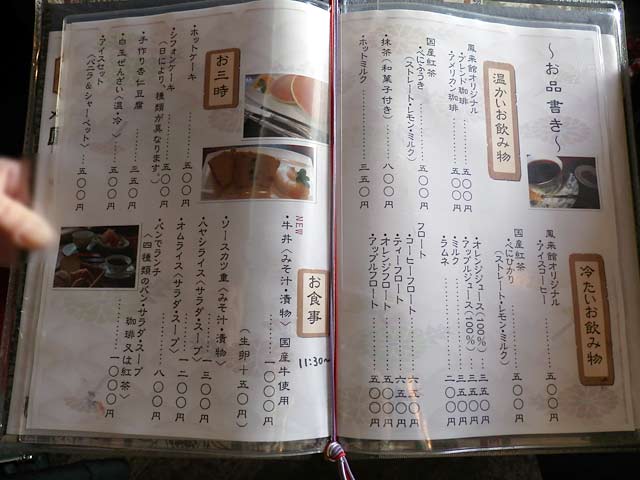 ～お品書き～
温かいお飲み物
鳳来館オリジナル
・ブレンド珈琲………五〇〇円
・アメリカン珈琲………五〇〇円
国産紅茶
・べにふうき………五〇〇円
(ストレート・レモン・ミルク)
・抹茶(和菓子付き)………八〇〇円
・ホットミルク………三五〇円
冷たいお飲み物
鳳来館オリジナル
・アイスコーヒー………五〇〇円
国産紅茶
・べにひかり………五〇〇円
(ストレート・レモン・ミルク)
・オレンジジュース(100%)…三五〇円
・アップルジュース(100%)…三五〇円
・ミルク………三五〇円
・ラムネ………二〇〇円
フロート
・コーヒーフロート………六五〇円
・ティーフロート………六五〇円
・オレンジフロート………五〇〇円
・アップルフロート………五〇〇円
お三時
・ホットケーキ………五〇〇円
・シフォンケーキ………五〇〇円
(日により、種類が異なります)
・手作り杏仁豆腐………三五〇円
・白玉ぜんざい(温・冷)………五〇〇円
・アイスセット………五〇〇円
(バニラ&シャーベット)
お食事
11:30〜
NEW
・牛丼(みそ汁・漬物)国産牛使用
………一〇〇〇円
(生卵+五〇円)
・ソースカツ重(みそ汁・漬物)
………一三〇〇円
・ハヤシライス(サラダ・スープ)
………一二〇〇円
・オムライス(サラダ・スープ)
………八〇〇円
・パンでランチ
(四種類のパン・サラダ・スープ
珈琲又は紅茶)
………一〇〇〇円